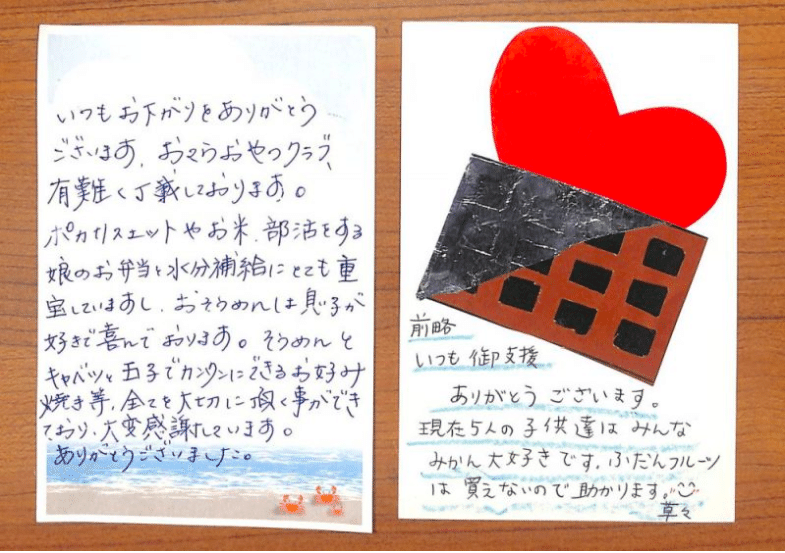 いつもお下がりをありがとう
ございます。おてらおやつクラブ、
有難く丁載しております。
ポカリスエットやお米、部活をする
娘のお弁当と水分補給にとても重
宝していますし、おそうめんは息子が
好きで喜んでおります。そうめんと
キャベツと玉子でカンタンにできるお好み
焼き等、全てを大切に頂く事ができ
ており、大変感謝しています。
ありがとうございました。
前略
いつも御支援
ありがとうございます。
現在5人の子供達はみんな
みかん大好きです。ふだんフルーツ
は買えないので助かります。
草々